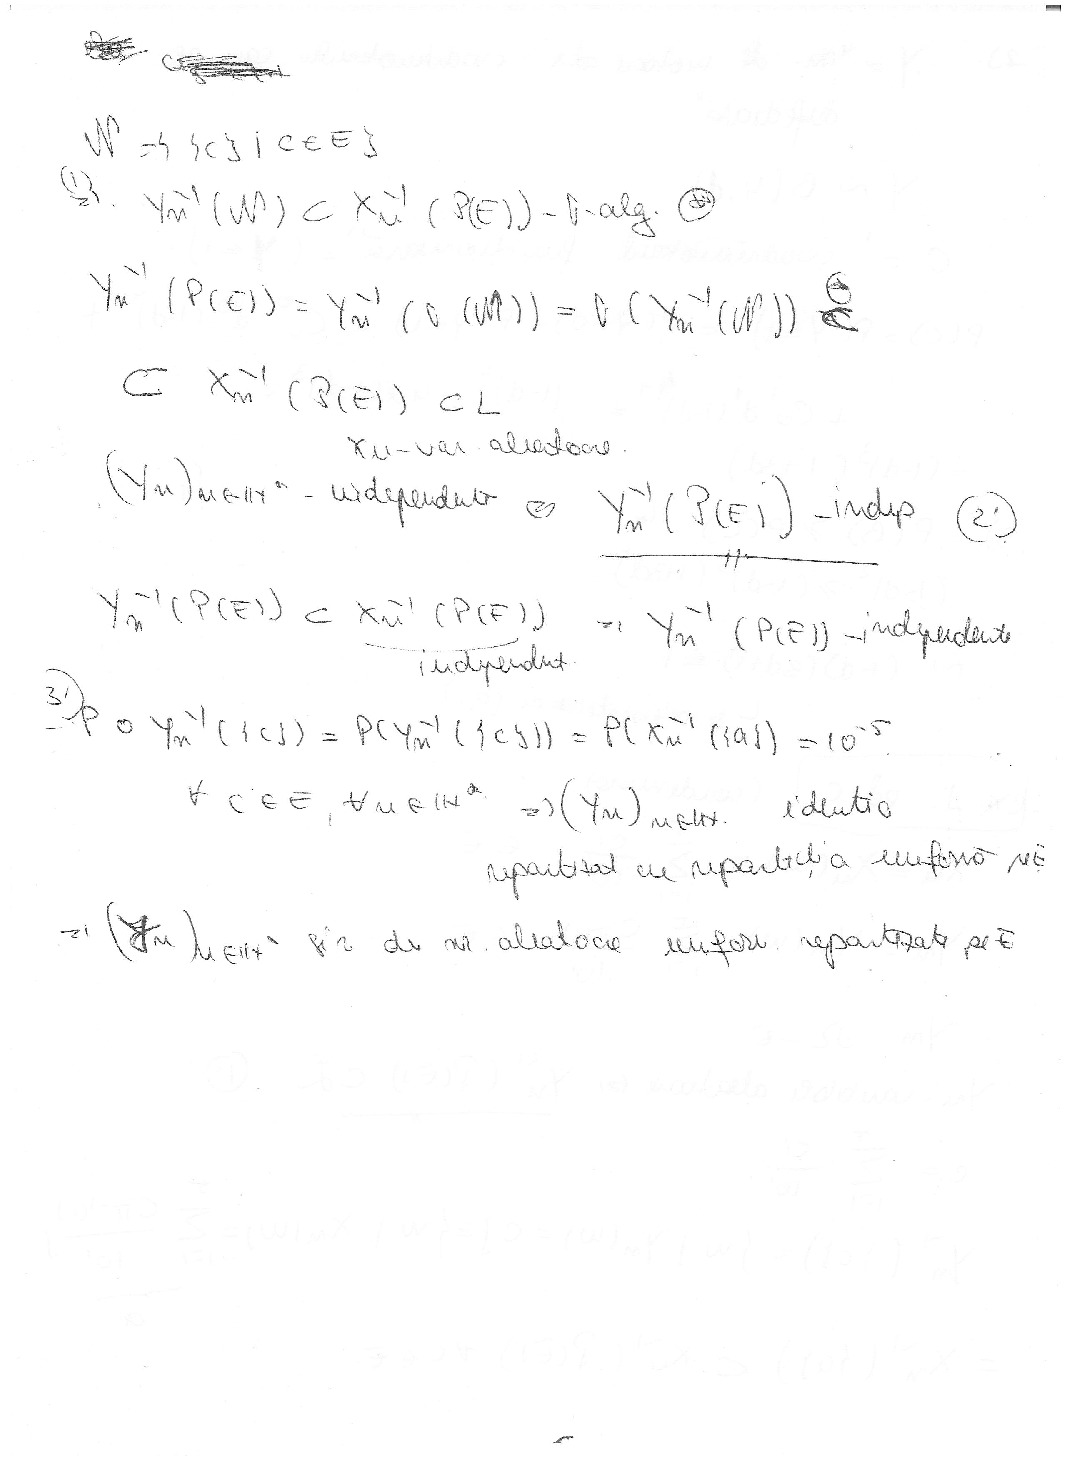 𝒩 = { {c} | c ∈ E }
(1') Yₙ⁻¹(𝒩) ⊂ Xₙ⁻¹(P(E)) - σ-alg. ⊛
Yₙ⁻¹(P(E)) = Yₙ⁻¹(σ(𝒩)) = σ(Yₙ⁻¹(𝒩))
⊂ Xₙ⁻¹(P(E)) ⊂ L
Xₙ - var. aleatoare.
(Yₙ)ₙ∈ℕ* - independente ⇔ Yₙ⁻¹(P(E)) - indep (2')
Yₙ⁻¹(P(E)) ⊂ Xₙ⁻¹(P(E)) ⇒ Yₙ⁻¹(P(E)) - independente
independent.
3') P ∘ Yₙ⁻¹({c}) = P(Yₙ⁻¹({c})) = P(Xₙ⁻¹({a}) = 10⁻⁵
∀ c ∈ E, ∀ n ∈ ℕ* ⇒ (Yₙ)ₙ∈ℕ* identic
repartizat cu repartiția uniformă pe E
⇒ (Yₙ)ₙ∈ℕ* șir de nr. aleatoare unifor. repartizate pe E